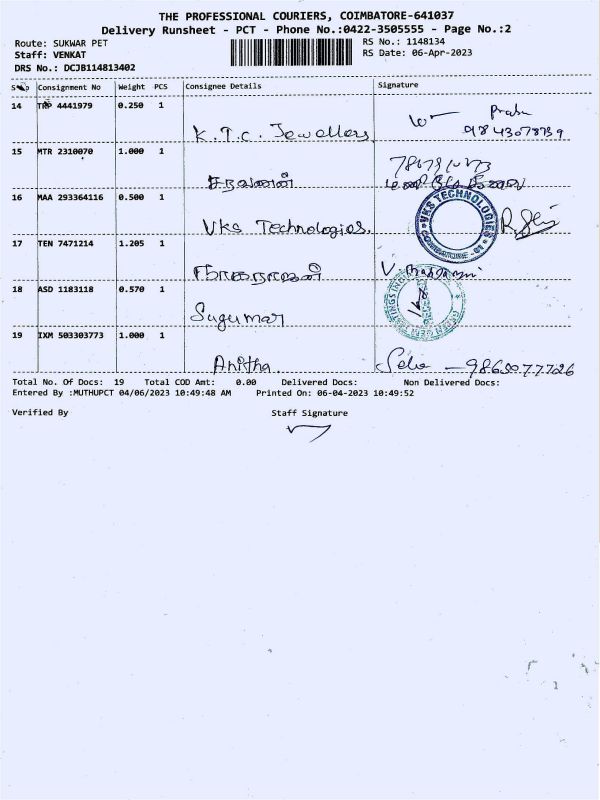 THE PROFESSIONAL COURIERS, COIMBATORE-641037
Delivery Runsheet - PCT - Phone No.:0422-3505555 - Page No.:2
Route: SUKWAR PET
RS No.: 1148134
Staff: VENKAT
RS Date: 06-Apr-2023
DRS No.: DCJB114813402
Consignment No Weight PCS Consignee Details Signature
14 TRP 4441979 0.250 1
K.T.C. Jewellers
Prabu
9843078739
15 MTR 2310070 1.000 1
சரவணன்
16 MAA 293364116 0.500 1
VKS Technologies.
VKS TECHNOLOGIES
17 TEN 7471214 1.205 1
18 ASD 1183118 0.570 1
Sugumar
19 IXM 503303773 1.000 1
Anitha.
Selva - 9865077726
Total No. Of Docs: 19 Total COD Amt: 0.00 Delivered Docs: Non Delivered Docs:
Entered By :MUTHUPCT 04/06/2023 10:49:48 AM Printed On: 06-04-2023 10:49:52
Verified By Staff Signature